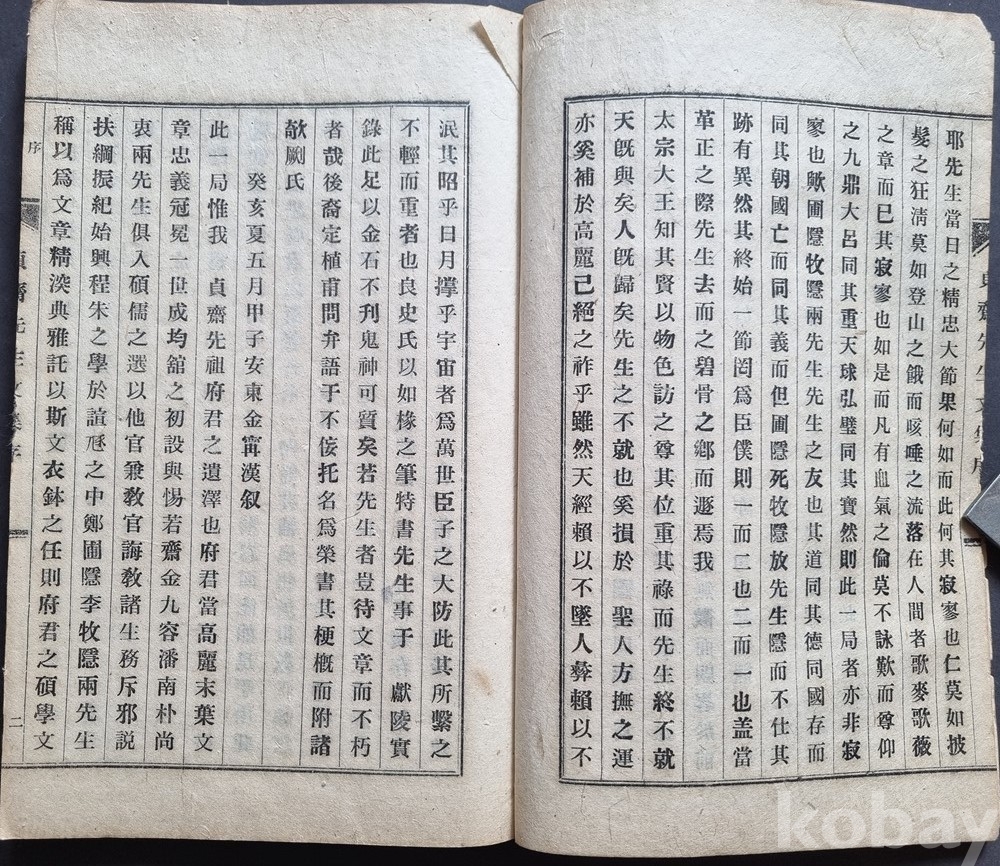 耶先生當日之精忠大節果何如而此何其寂寥也仁莫如披
髮之狂淸莫如登山之餓而咳唾之流落在人間者歌麥歌薇
之章而已其寂寥也如是而凡有血氣之倫莫不詠歎而尊仰
之九鼎大呂同其重天球弘璧同其寶然則此一局者亦非寂
寥也歟圃隱牧隱兩先生先生之友也其道同其德同國存而
同其朝國亡而同其義而但圃隱死牧隱放先生隱而不仕其
跡有異然其終始一節罔爲臣僕則一而二也二而一也盖當
革正之際先生去而之碧骨之鄕而遯焉我
太宗大王知其賢以物色訪之尊其位重其祿而先生終不就
天旣與矣人旣歸矣先生之不就也奚損於 聖人方撫之運
亦奚補於高麗已絕之祚乎雖然天經賴以不墜人彜賴以不
泯其昭乎日月撑乎宇宙者爲萬世臣子之大防此其所繫之
不輕而重者也良史氏以如椽之筆特書先生事于 獻陵實
錄此足以金石不刋鬼神可質矣若先生者豈待文章而不朽
者哉後裔定植甫問弁語于不侫托名爲榮書其梗槪而附諸
欹劂氏
癸亥夏五月甲子安東金甯漢叙
此一局惟我 貞齋先祖府君之遺澤也府君當高麗末葉文
章忠義冠冕一世成均舘之初設與惕若齋金九容潘南朴尙
衷兩先生俱入碩儒之選以他官兼敎官誨敎諸生務斥邪說
扶綱振紀始興程朱之學於諠豗之中鄭圃隱李牧隱兩先生
稱以爲文章精深典雅託以斯文衣鉢之任則府君之碩學文
貞齋先生文集序
序
二
kobay